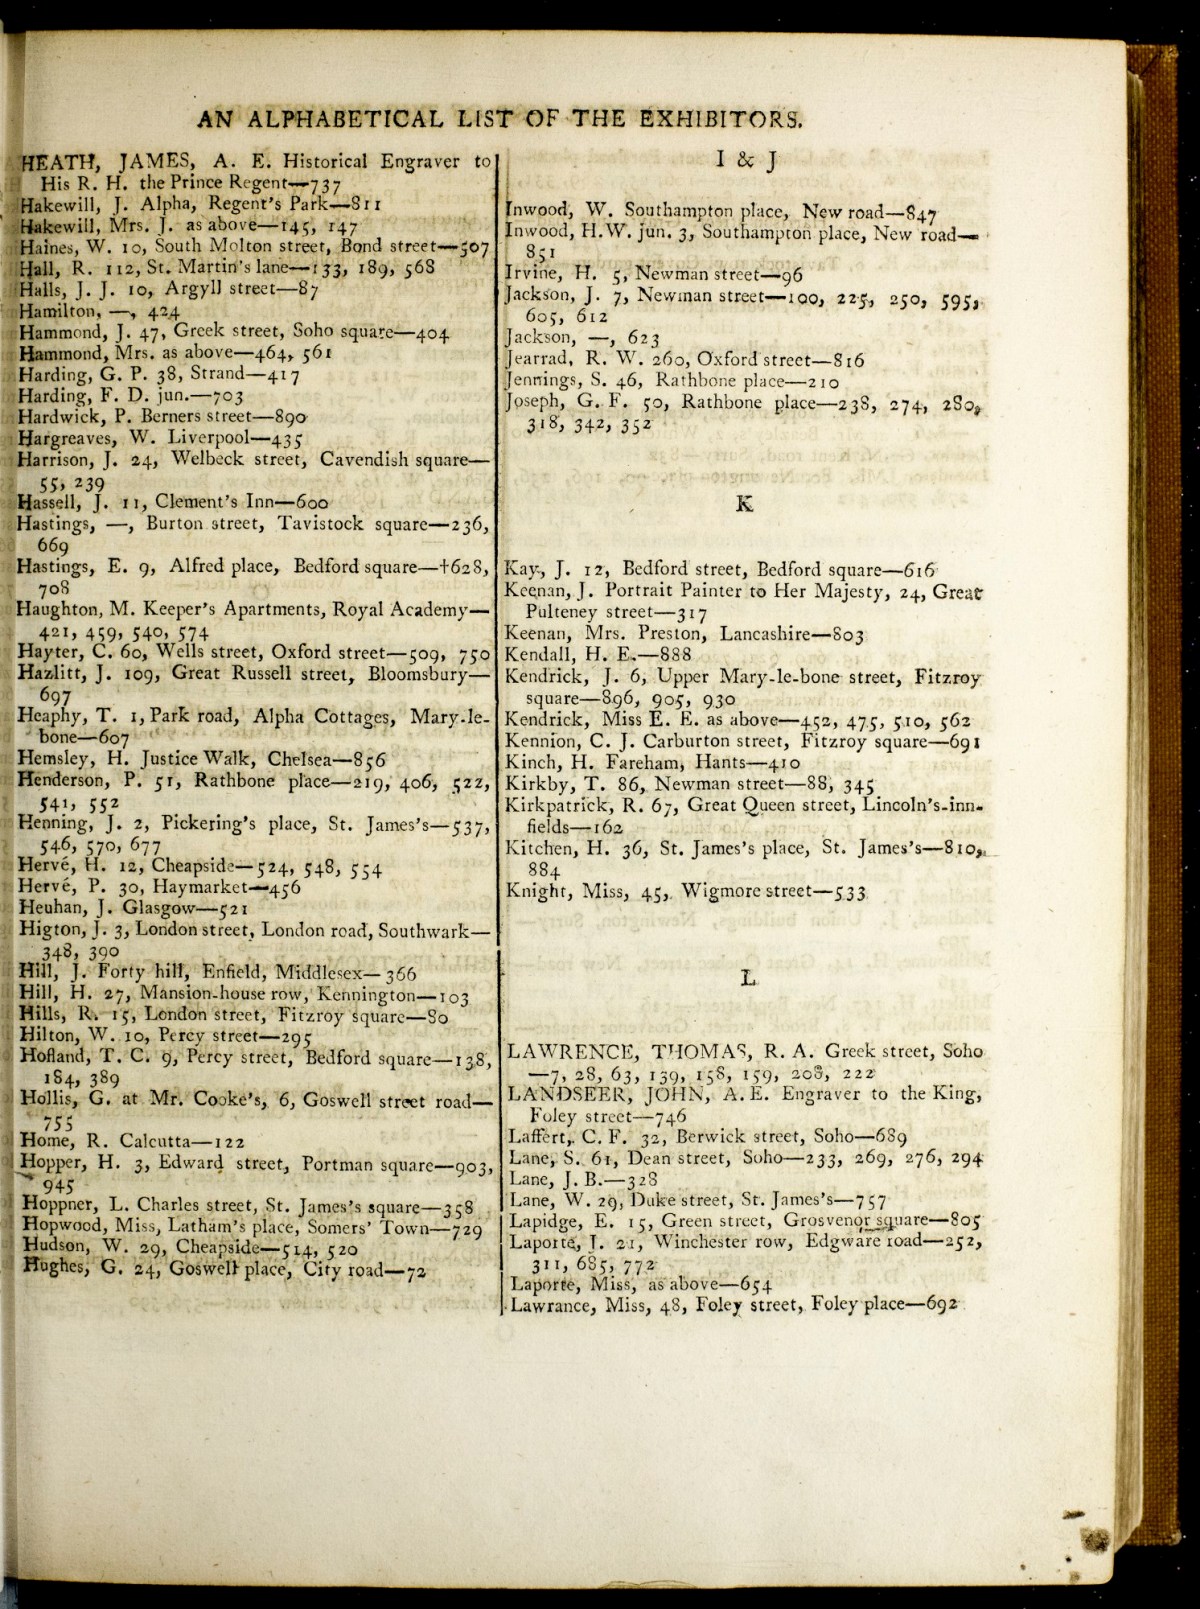 AN ALPHABETICAL LIST OF THE EXHIBITORS.
HEATH, JAMES, A. E. Historical Engraver to
His R. H. the Prince Regent—737
Hakewill, J. Alpha, Regent's Park—811
Hakewill, Mrs. J. as above—145, 147
Haines, W. 10, South Molton street, Bond street—507
Hall, R. 112, St. Martin's lane—133, 189, 568
Halls, J. J. 10, Argyll street—87
Hamilton, —, 424
Hammond, J. 47, Greek street, Soho square—404
Hammond, Mrs. as above—464, 561
Harding, G. P. 38, Strand—417
Harding, F. D. jun.—703
Hardwick, P. Berners street—890
Hargreaves, W. Liverpool—435
Harrison, J. 24, Welbeck street, Cavendish square—
55, 239
Hassell, J. 11, Clement's Inn—600
Hastings, —, Burton street, Tavistock square—236,
669
Hastings, E. 9, Alfred place, Bedford square—†628,
708
Haughton, M. Keeper's Apartments, Royal Academy—
421, 459, 540, 574
Hayter, C. 60, Wells street, Oxford street—509, 750
Hazlitt, J. 109, Great Russell street, Bloomsbury—
697
Heaphy, T. 1, Park road, Alpha Cottages, Mary-le-
bone—607
Hemsley, H. Justice Walk, Chelsea—856
Henderson, P. 51, Rathbone place—219, 406, 522,
541, 552
Henning, J. 2, Pickering's place, St. James's—537,
546, 570, 677
Hervé, H. 12, Cheapside—524, 548, 554
Hervé, P. 30, Haymarket—456
Heuhan, J. Glasgow—521
Higton, J. 3, London street, London road, Southwark—
348, 390
Hill, J. Forty hill, Enfield, Middlesex—366
Hill, H. 27, Mansion-house row, Kennington—103
Hills, R. 15, London street, Fitzroy square—80
Hilton, W. 10, Percy street—295
Hofland, T. C. 9, Percy street, Bedford square—138,
184, 389
Hollis, G. at Mr. Cooke's, 6, Goswell street road—
755
Home, R. Calcutta—122
Hopper, H. 3, Edward street, Portman square—903,
945
Hoppner, L. Charles street, St. James's square—358
Hopwood, Miss, Latham's place, Somers' Town—729
Hudson, W. 29, Cheapside—514, 520
Hughes, G. 24, Goswell place, City road—72
I & J
Inwood, W. Southampton place, New road—847
Inwood, H. W. jun. 3, Southampton place, New road—
851
Irvine, H. 5, Newman street—96
Jackson, J. 7, Newman street—100, 225, 250, 595,
605, 612
Jackson, —, 623
Jearrad, R. W. 260, Oxford street—816
Jennings, S. 46, Rathbone place—210
Joseph, G. F. 50, Rathbone place—238, 274, 280,
318, 342, 352
K
Kay, J. 12, Bedford street, Bedford square—616
Keenan, J. Portrait Painter to Her Majesty, 24, Great
Pulteney street—317
Keenan, Mrs. Preston, Lancashire—803
Kendall, H. E.—888
Kendrick, J. 6, Upper Mary-le-bone street, Fitzroy
square—896, 905, 930
Kendrick, Miss E. E. as above—452, 475, 510, 562
Kennion, C. J. Carburton street, Fitzroy square—691
Kinch, H. Fareham, Hants—410
Kirkby, T. 86, Newman street—88, 345
Kirkpatrick, R. 67, Great Queen street, Lincoln's-inn-
fields—162
Kitchen, H. 36, St. James's place, St. James's—810,
884
Knight, Miss, 45, Wigmore street—533
L
LAWRENCE, THOMAS, R. A. Greek street, Soho
—7, 28, 63, 139, 158, 159, 208, 222
LANDSEER, JOHN, A. E. Engraver to the King,
Foley street—746
Laffert, C. F. 32, Berwick street, Soho—689
Lane, S. 61, Dean street, Soho—233, 269, 276, 294
Lane, J. B.—328
Lane, W. 29, Duke street, St. James's—757
Lapidge, E. 15, Green street, Grosvenor square—805
Laporte, J. 21, Winchester row, Edgware road—252,
311, 685, 772
Laporte, Miss, as above—654
Lawrance, Miss, 48, Foley street, Foley place—692